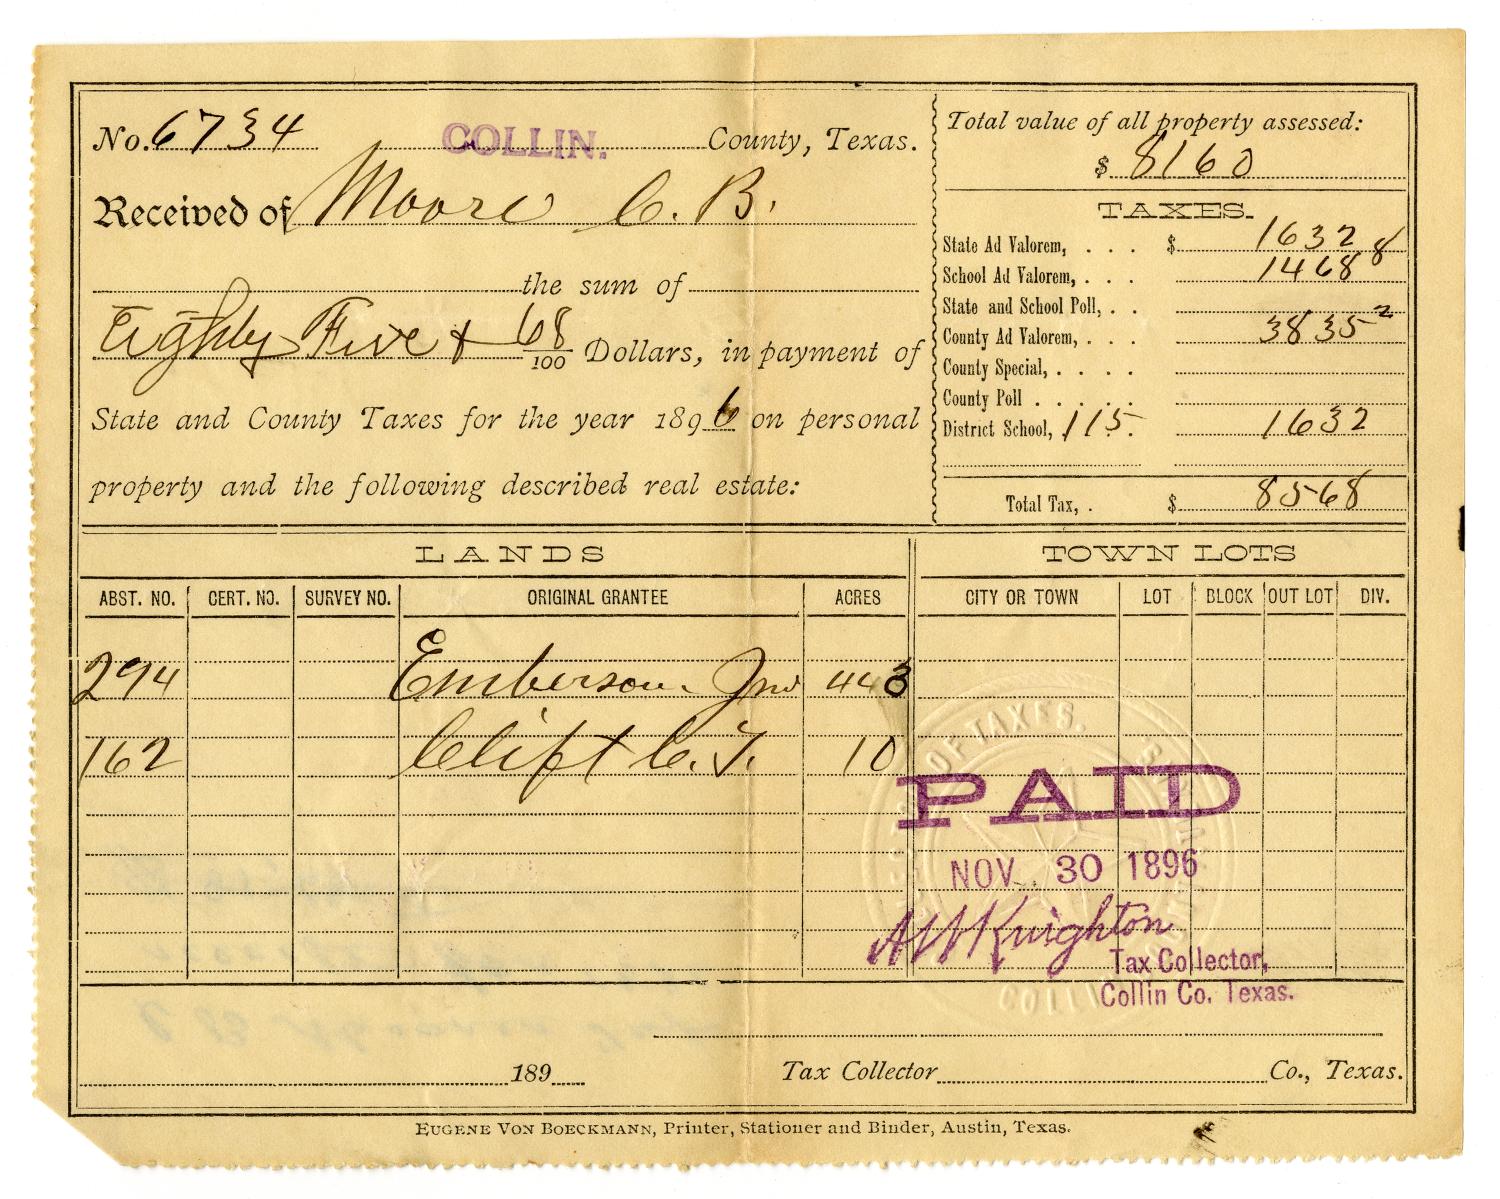 No. 6734 COLLIN. County, Texas.
Received of Moore C. B.
the sum of
Eighty Five & 68/100 Dollars, in payment of
State and County Taxes for the year 1896 on personal
property and the following described real estate:
Total value of all property assessed:
$ 8160
TAXES.
State Ad Valorem, . . . $ 1632 8
School Ad Valorem, . . . 1468
State and School Poll, . .
County Ad Valorem, . . . 3835 2
County Special, . . . .
County Poll . . . . .
District School, 115. 1632
Total Tax, . $ 8568
LANDS
ABST. NO. CERT. NO. SURVEY NO. ORIGINAL GRANTEE ACRES
294 Emberson Jno 443
162 Clift C. T. 10
TOWN LOTS
CITY OR TOWN LOT BLOCK OUT LOT DIV.
OF TAXES.
PAID
NOV. 30 1896
A W Knighton
Tax Collector,
Collin Co. Texas.
COLLIN
189
Tax Collector Co., Texas.
EUGENE VON BOECKMANN, Printer, Stationer and Binder, Austin, Texas.